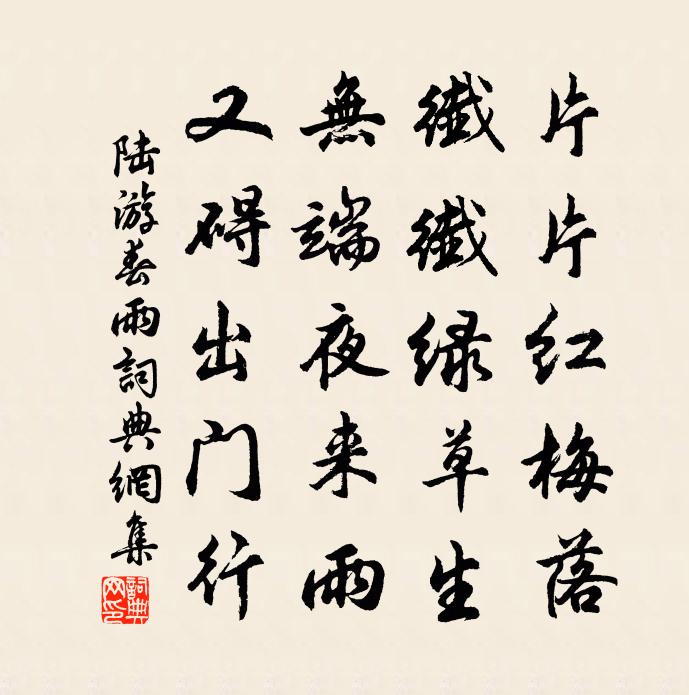 片片红梅落
纖纖绿草生
無端夜来雨
又碍出门行
陆游春雨詞典網集
詞典网印